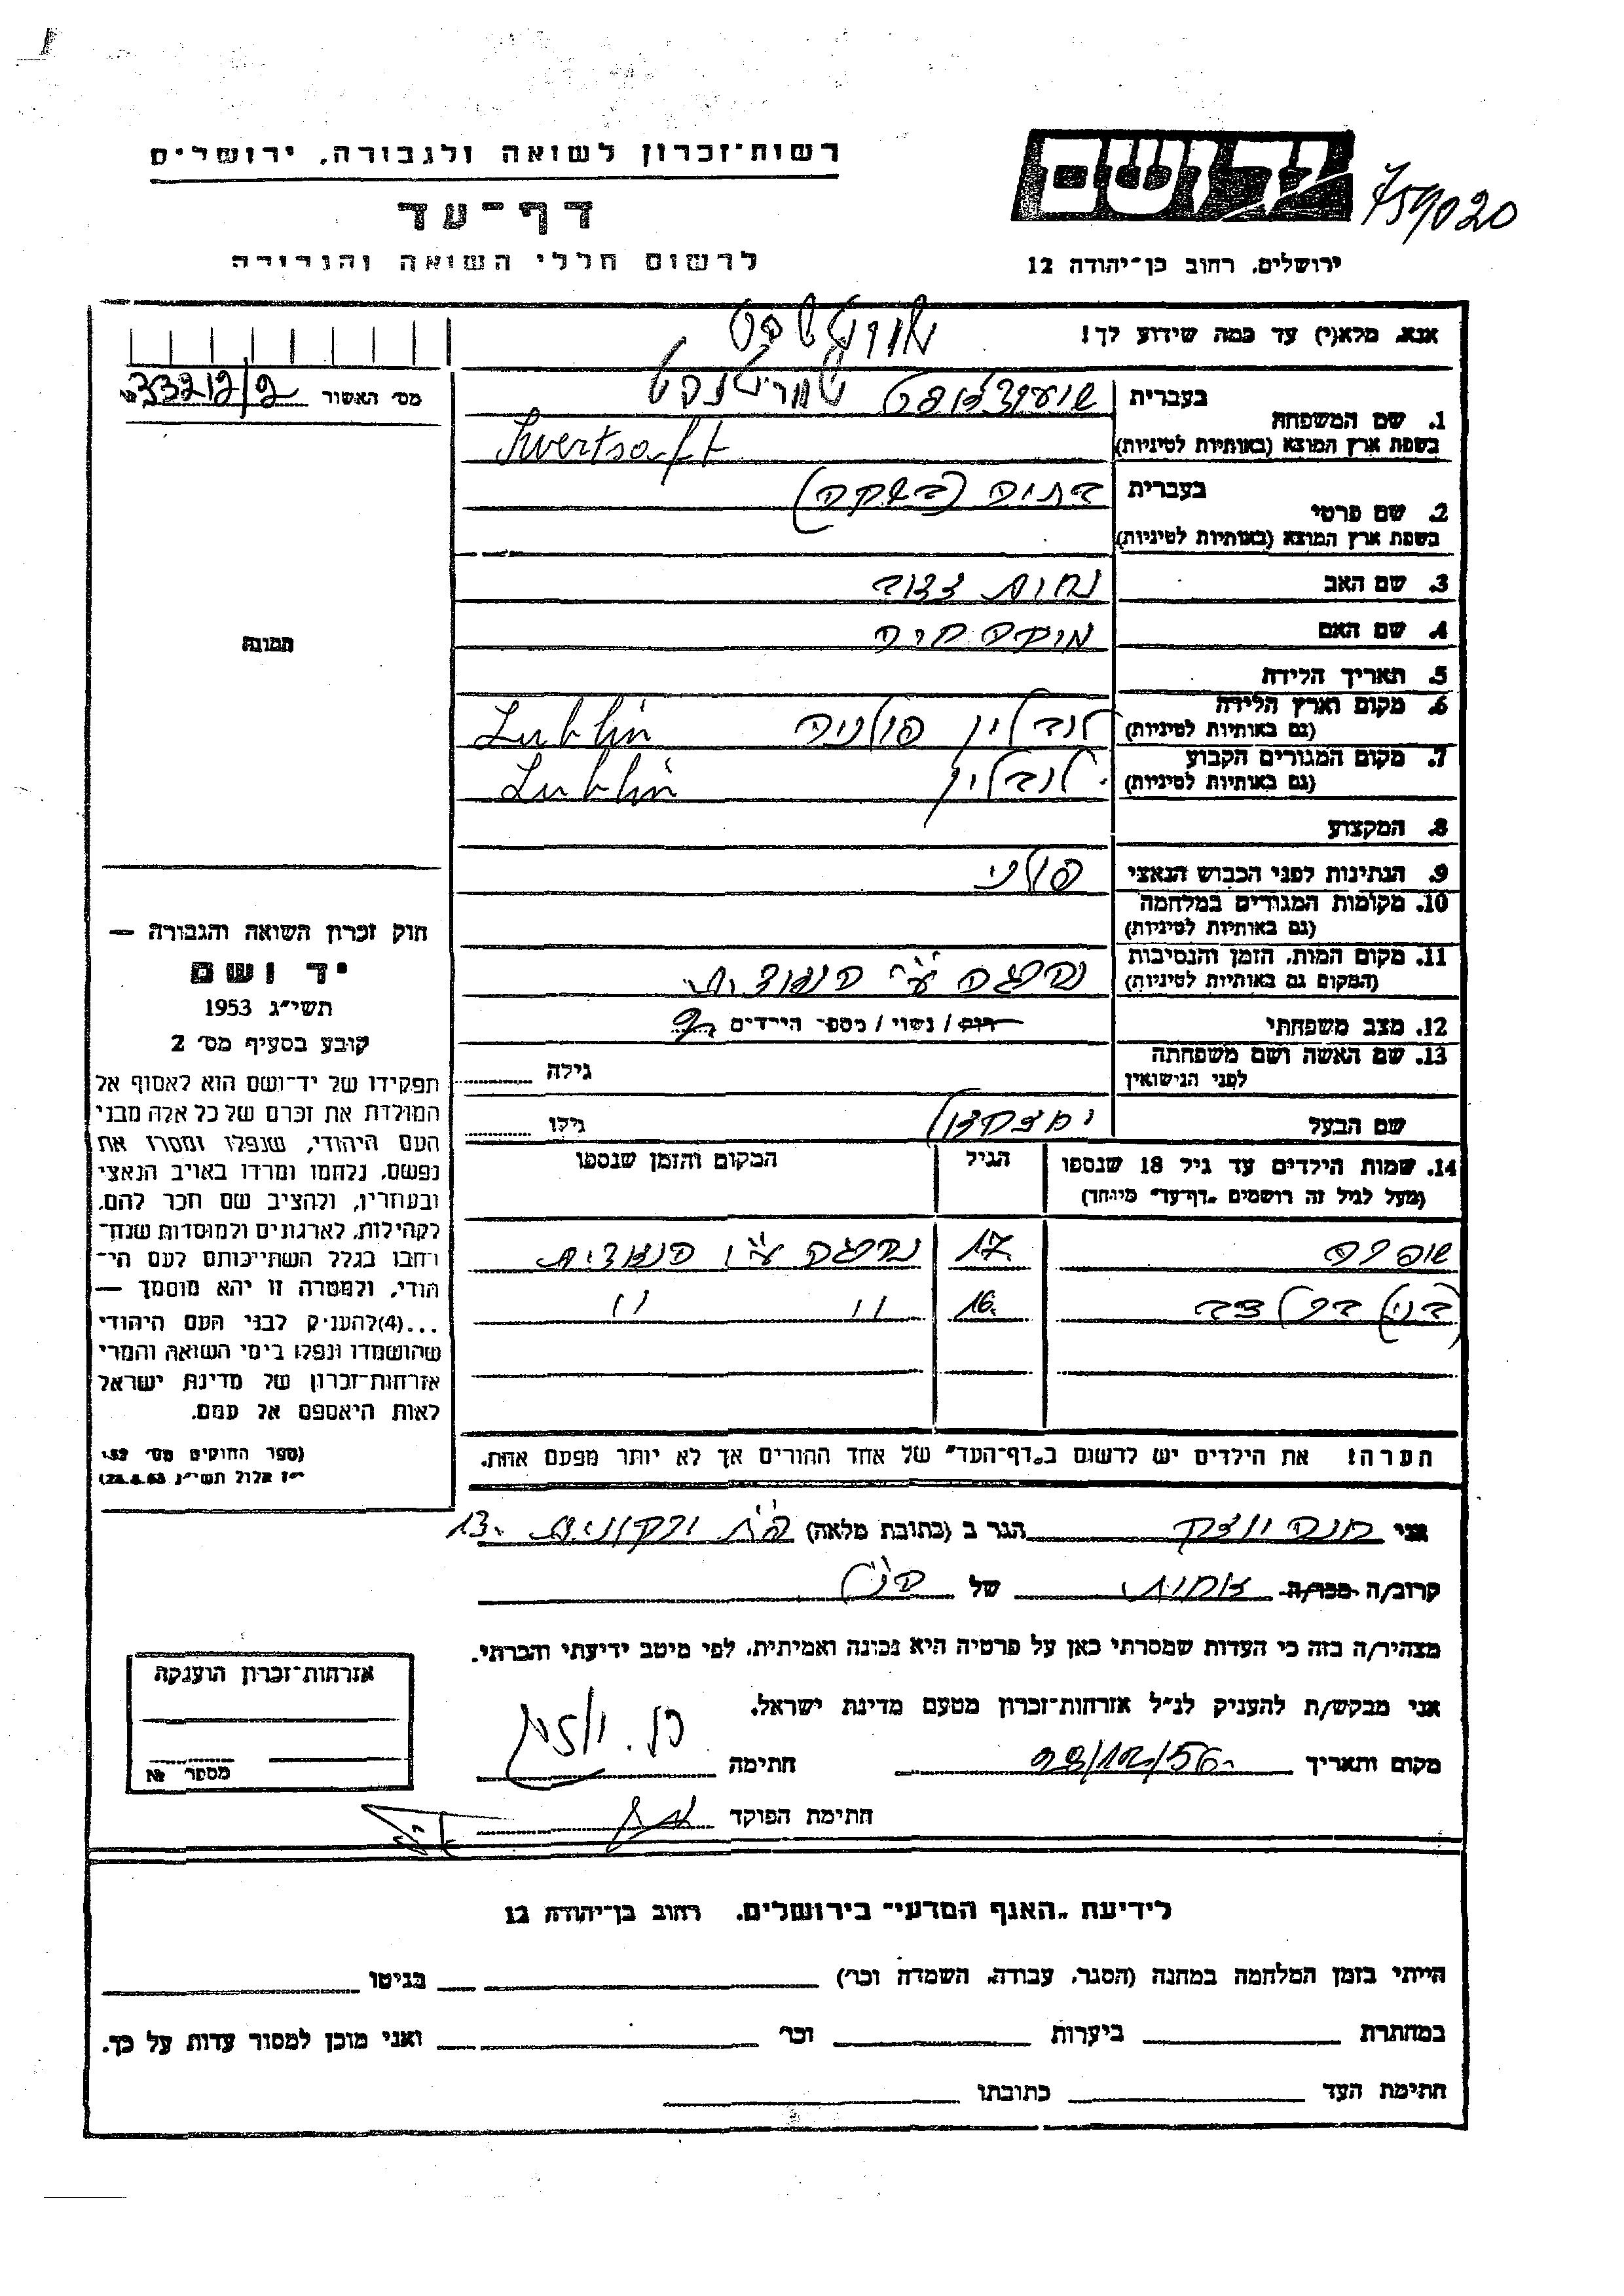 רשות-זכרון לשואה ולגבורה, ירושלים
דף-עד
לרשום חללי השואה והגבורה
ידושם
759020
ירושלים, רחוב בן-יהודה 12
אנא, מלא(י) עד כמה שידוע לך!
מס׳ האשור № 33212/2
1. שם המשפחה
בעברית
בשפת ארץ המוצא (באותיות לטיניות) Swertsaft
2. שם פרטי
בעברית
בשפת ארץ המוצא (באותיות לטיניות)
3. שם האב נחום
4. שם האם חיה
5. תאריך הלידה
6. מקום וארץ הלידה
(גם באותיות לטיניות) לובלין פולניה Lublin
7. מקום המגורים הקבוע
(גם באותיות לטיניות) לובלין Lublin
8. המקצוע
9. הנתינות לפני הכבוש הנאצי פולני
10. מקומות המגורים במלחמה
(גם באותיות לטיניות)
11. מקום המות, הזמן והנסיבות
(המקום גם באותיות לטיניות) נהרגה ע״י הנאצים
12. מצב משפחתי רוק / נשוי / מספר הילדים 2
13. שם האשה ושם משפחתה
לפני הנישואין
גילה
שם הבעל
גילו
14. שמות הילדים עד גיל 18 שנספו
(מעל לגיל זה רושמים "דף-עד" מיוחד)
הגיל
המקום והזמן שנספו
17 נהרגה ע״י הנאצים
16 11 11
הערה! את הילדים יש לרשום ב"דף-העד" של אחד ההורים אך לא יותר מפעם אחת.
תמונה
חוק זכרון השואה והגבורה —
יד ושם
תשי״ג 1953
קובע בסעיף מס׳ 2
תפקידו של יד-ושם הוא לאסוף אל
המולדת את זכרם של כל אלה מבני
העם היהודי, שנפלו ומסרו את
נפשם, נלחמו ומרדו באויב הנאצי
ובעוזריו, ולהציב שם וזכר להם,
לקהילות, לארגונים ולמוסדות שנח-
רבו בגלל השתייכותם לעם הי-
הודי, ולמטרה זו יהא מוסמך —
...(4)להעניק לבני העם היהודי
שהושמדו ונפלו בימי השואה והמרי
אזרחות-זכרון של מדינת ישראל
לאות היאספם אל עמם.
(ספר החוקים מס׳ 132
י״ז אלול תשי״ג 28.8.53)
אני חנה הגר ב (כתובת מלאה) 13
קרוב/ה מכר/ה אחות של הנ״ל
מצהיר/ה בזה כי העדות שמסרתי כאן על פרטיה היא נכונה ואמיתית, לפי מיטב ידיעתי והכרתי.
אני מבקש/ת להעניק לנ״ל אזרחות-זכרון מטעם מדינת ישראל.
מקום ותאריך 22/12/56 חתימה
חתימת הפוקד
אזרחות-זכרון הוענקה
מספר №
לידיעת "האגף המדעי" בירושלים, רחוב בן-יהודה 12
הייתי בזמן המלחמה במחנה (הסגר, עבודה, השמדה וכו׳) בגיטו
במחתרת ביערות וכו׳ ואני מוכן למסור עדות על כך.
חתימת העד כתובתו